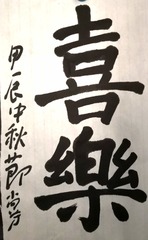 喜樂
甲辰中秋節